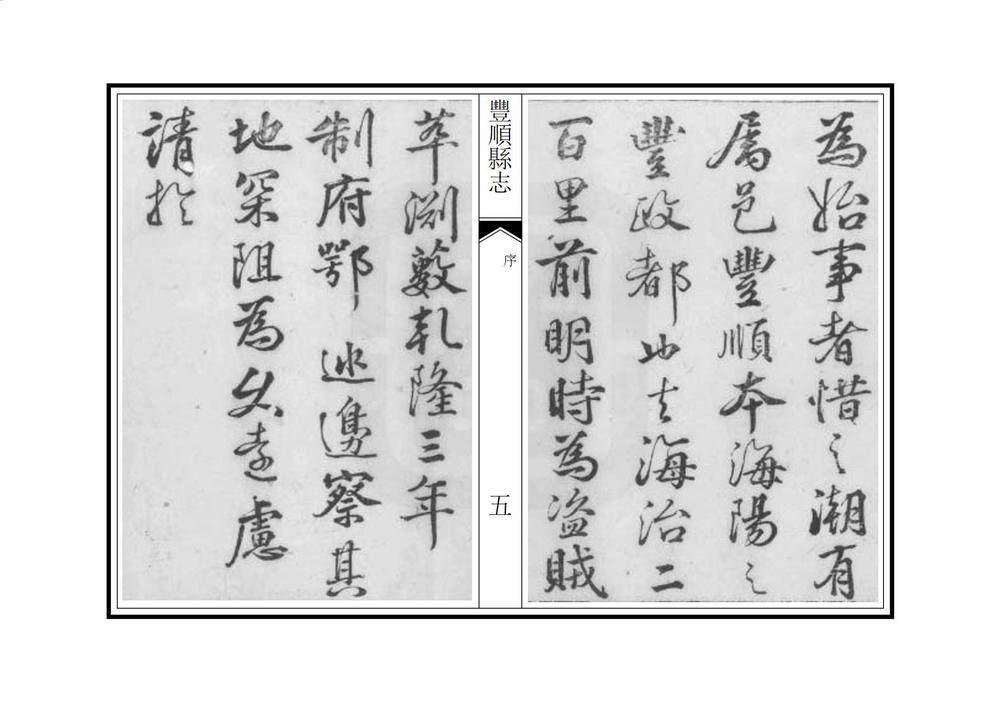 為始事者惜之潮有
屬邑豐順本海陽之
豐政都地去海治二
百里前明時為盜賊
豐順縣志
序
五
萃淵藪乾隆三年
制府鄂 巡邊察其
地深阻為久遠慮
請於